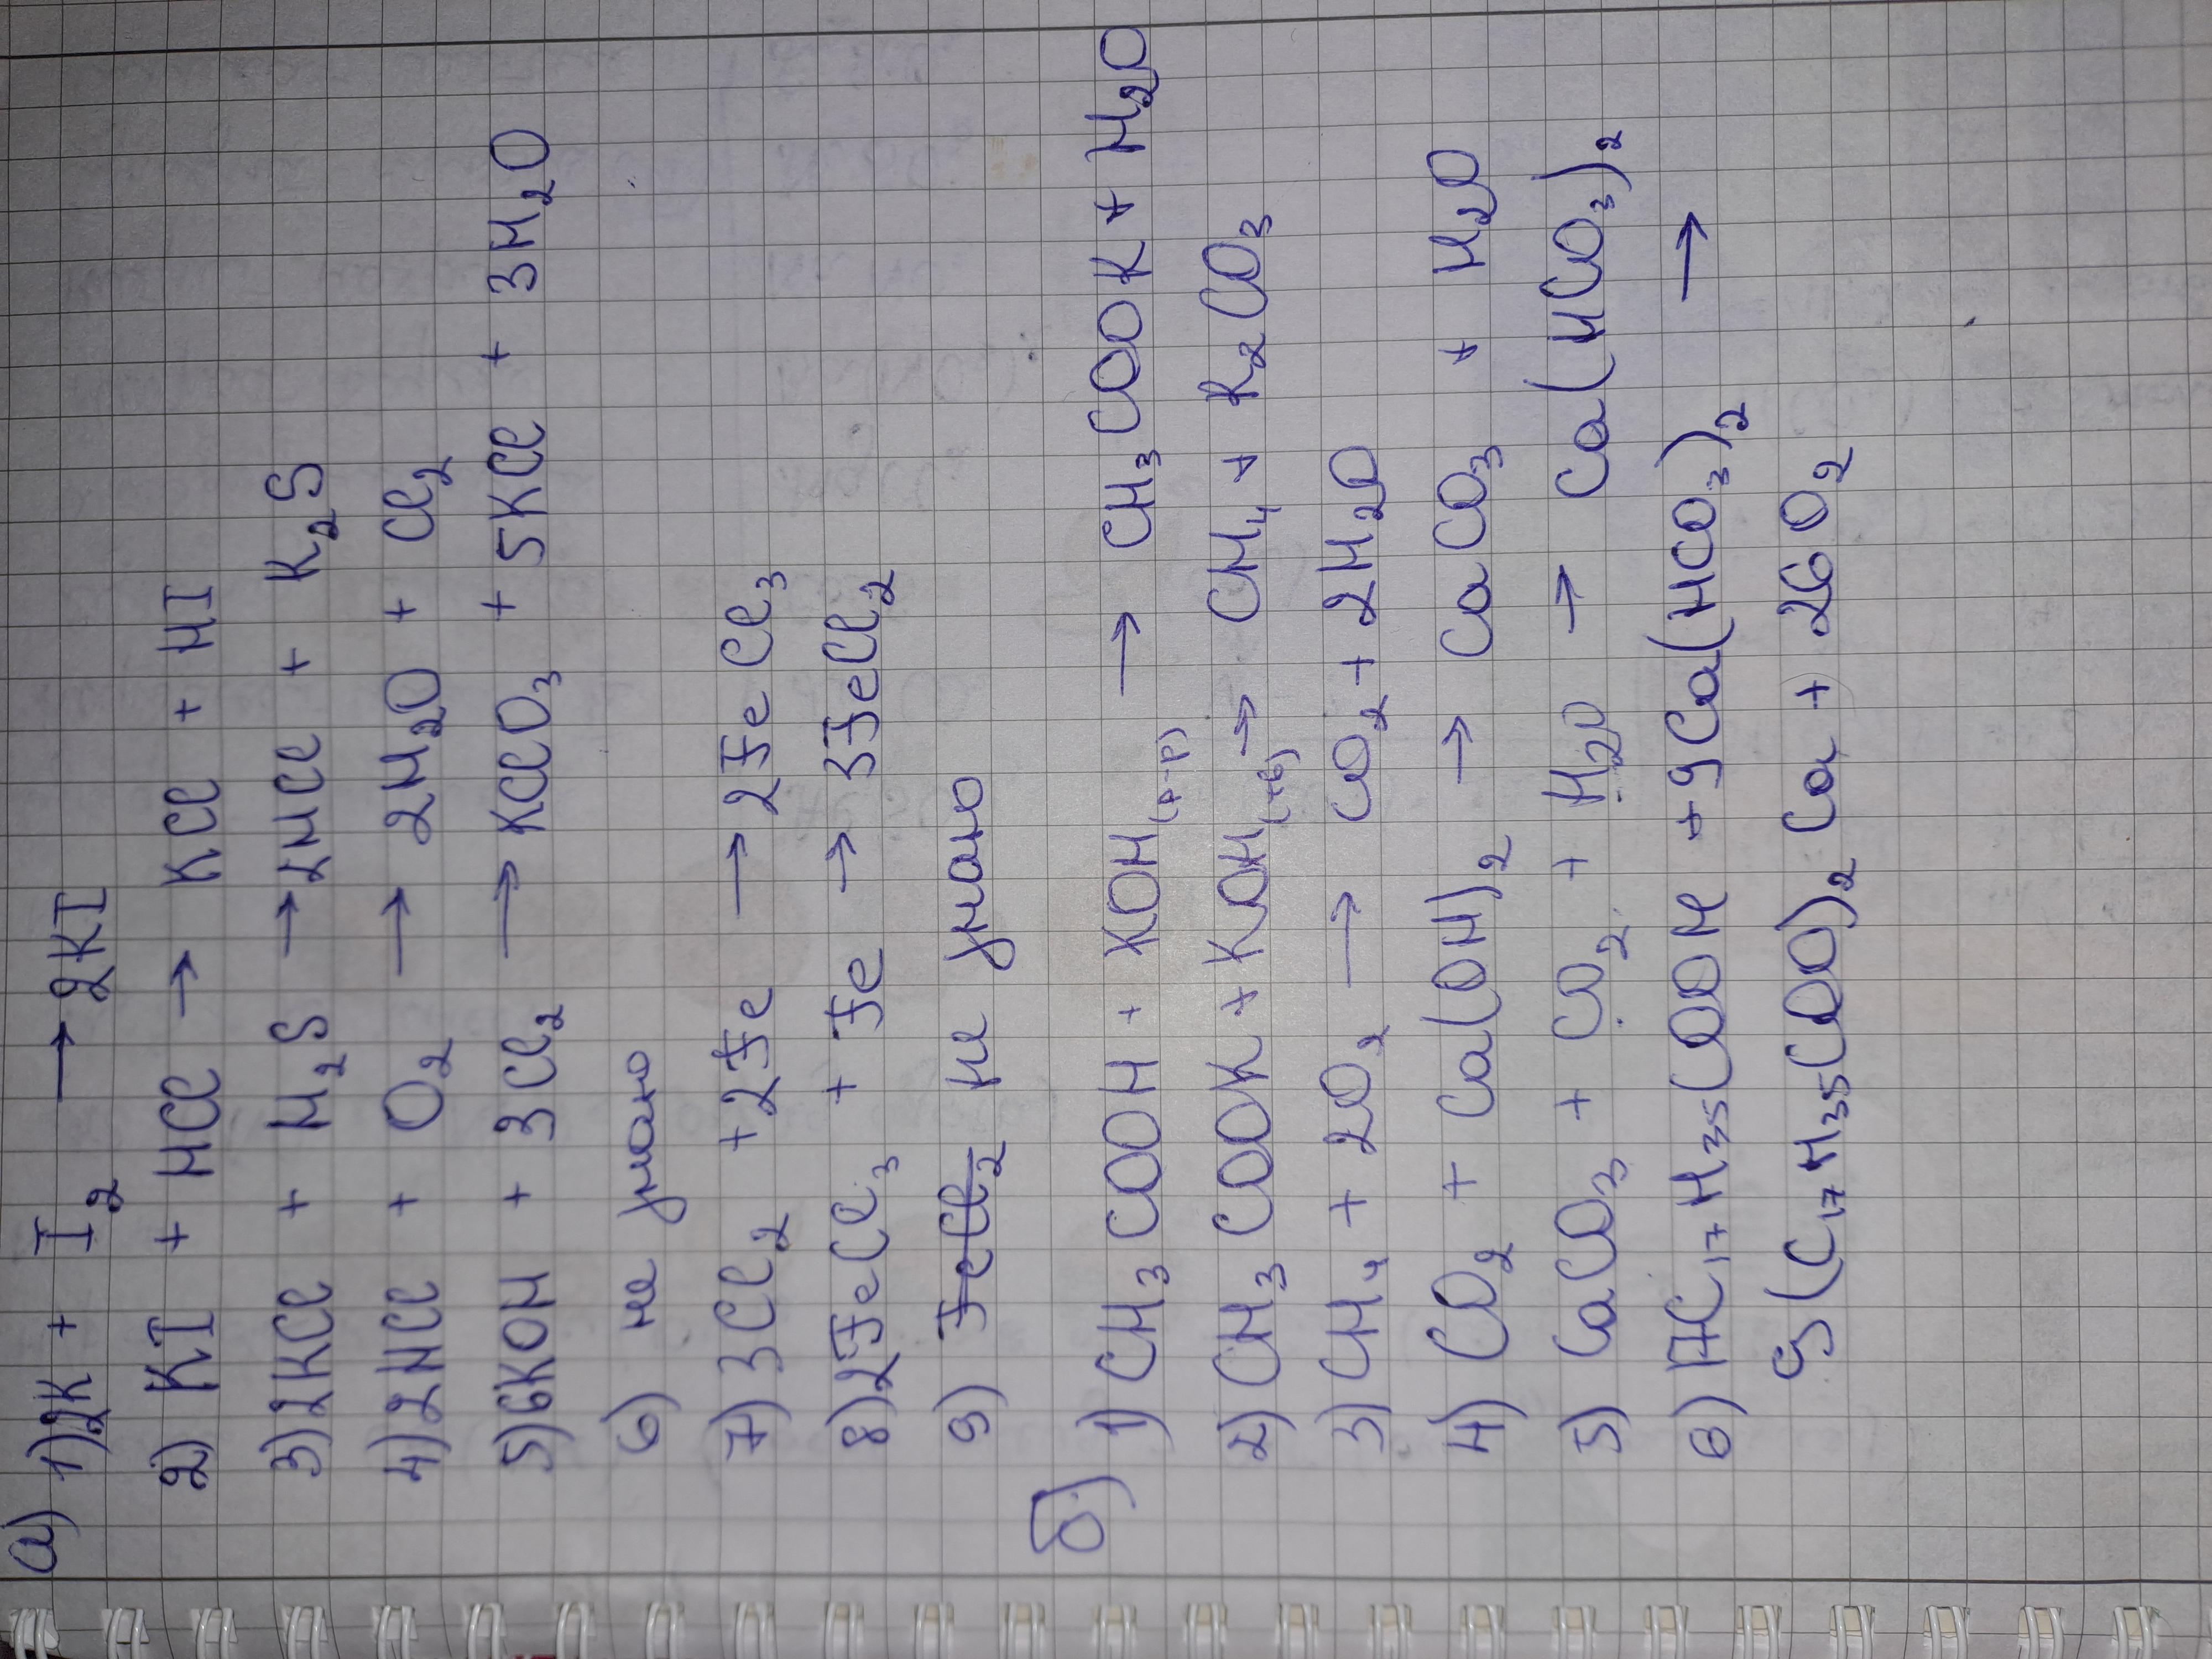 а) 1) 2K + I₂ → 2KI
2) KI + HCl → KCl + HI
3) 2KCl + H₂S → 2HCl + K₂S
4) 2HCl + O₂ → 2H₂O + Cl₂
5) 6KOH + 3Cl₂ → KClO₃ + 5KCl + 3H₂O
6) не знаю
7) 3Cl₂ + 2Fe → 2FeCl₃
8) 2FeCl₃ + Fe → 3FeCl₂
9) не знаю
б) 1) CH₃COOH + KOH(р-р) → CH₃COOK + H₂O
2) CH₃COOK + KOH(тв) → CH₄ + K₂CO₃
3) CH₄ + 2O₂ → CO₂ + 2H₂O
4) CO₂ + Ca(OH)₂ → CaCO₃ + H₂O
5) CaCO₃ + CO₂ + H₂O → Ca(HCO₃)₂
6) C₁₇H₃₅COOH + 9Ca(HCO₃)₂ →
9(C₁₇H₃₅COO)₂Ca + 26O₂